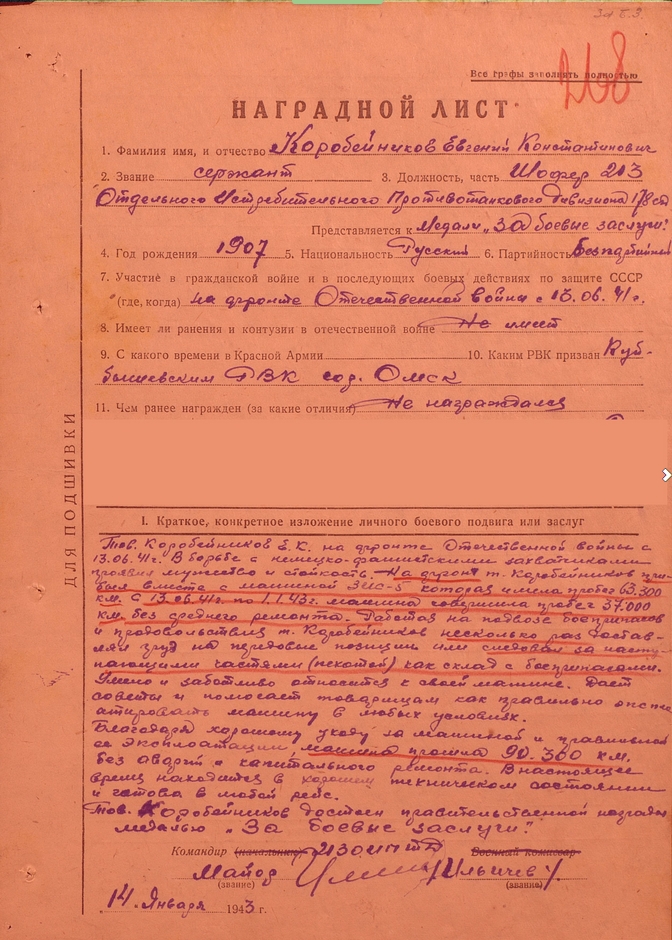 268
Все графы заполнять полностью
НАГРАДНОЙ ЛИСТ
1. Фамилия имя, и отчество Коробейников Евгений Константинович
2. Звание сержант 3. Должность, часть Шофер 213
Отдельного Истребительного Противотанкового Дивизиона 178 сд
Представляется к Медали „За боевые заслуги".
4. Год рождения 1907 5. Национальность Русский 6. Партийность Безпартийный
7. Участие в гражданской войне и в последующих боевых действиях по защите СССР
(где, когда) на фронте Отечественной войны с 13.06.41г.
8. Имеет ли ранения и контузии в отечественной войне Не имеет
9. С какого времени в Красной Армии 10. Каким РВК призван Куй-
бышевским РВК гор. Омск
11. Чем ранее награжден (за какие отличия) Не награждался
ДЛЯ ПОДШИВКИ
I. Краткое, конкретное изложение личного боевого подвига или заслуг
Тов. Коробейников Е.К. на фронте Отечественной войны с
13.06.41г. В борьбе с немецко-фашистскими захватчиками
проявил мужество и стойкость. На фронт т. Коробейников при-
был вместе с машиной ЗИС-5 которая имела пробег 63.300
км. С 13.06.41г. по 1.1.43г. машина совершила пробег 37.000
км. без среднего ремонта. Работая на подвозе боеприпасов
и продовольствия т. Коробейников несколько раз достав-
лял груз на передовые позиции или следовал за насту-
пающими частями (пехотой) как склад с боеприпасами.
Умело и заботливо относится к своей машине. Дает
советы и помогает товарищам как правильно эксплу-
атировать машину в любых условиях.
Благодаря хорошему уходу за машиной и правильной
ее эксплоатации, машина прошла 90.300 км.
без аварий и капитального ремонта. В настоящее
время находится в хорошем техническом состоянии
и готова в любой рейс.
Тов. Коробейников достоен правительственной награды
медалью „За боевые заслуги".
Командир (начальник) 213 ОИПТД Военный комиссар
Майор Ильичев
(звание) (звание)
14 Января 1943 г.